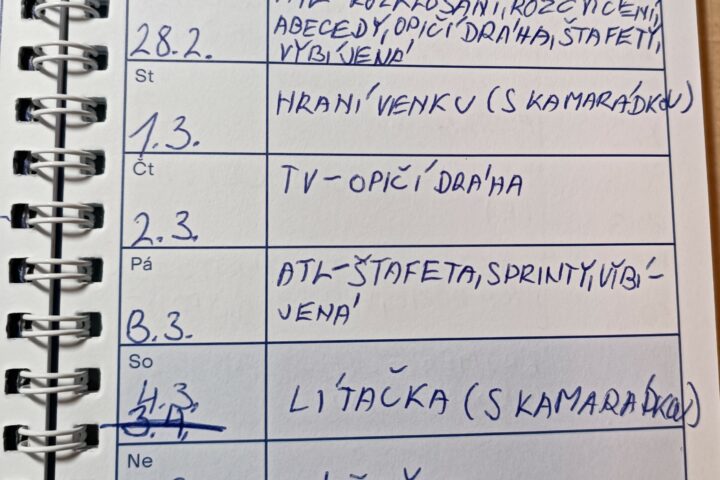 ATL- ROZKLUSÁNÍ, ROZCVIČENÍ,
28.2. ABECEDY, OPIČÍ DRÁHA, ŠTAFETY,
VYBÍJENÁ
St
1.3. HRANÍ VENKU (S KAMARÁDKOU)
Čt
2.3. TV-OPIČÍ DRÁHA
Pá
3.3. ATL-ŠTAFETA, SPRINTY, VYBÍ-
JENÁ
So
4.3. LÍTAČKA (S KAMARÁDKOU)
Ne